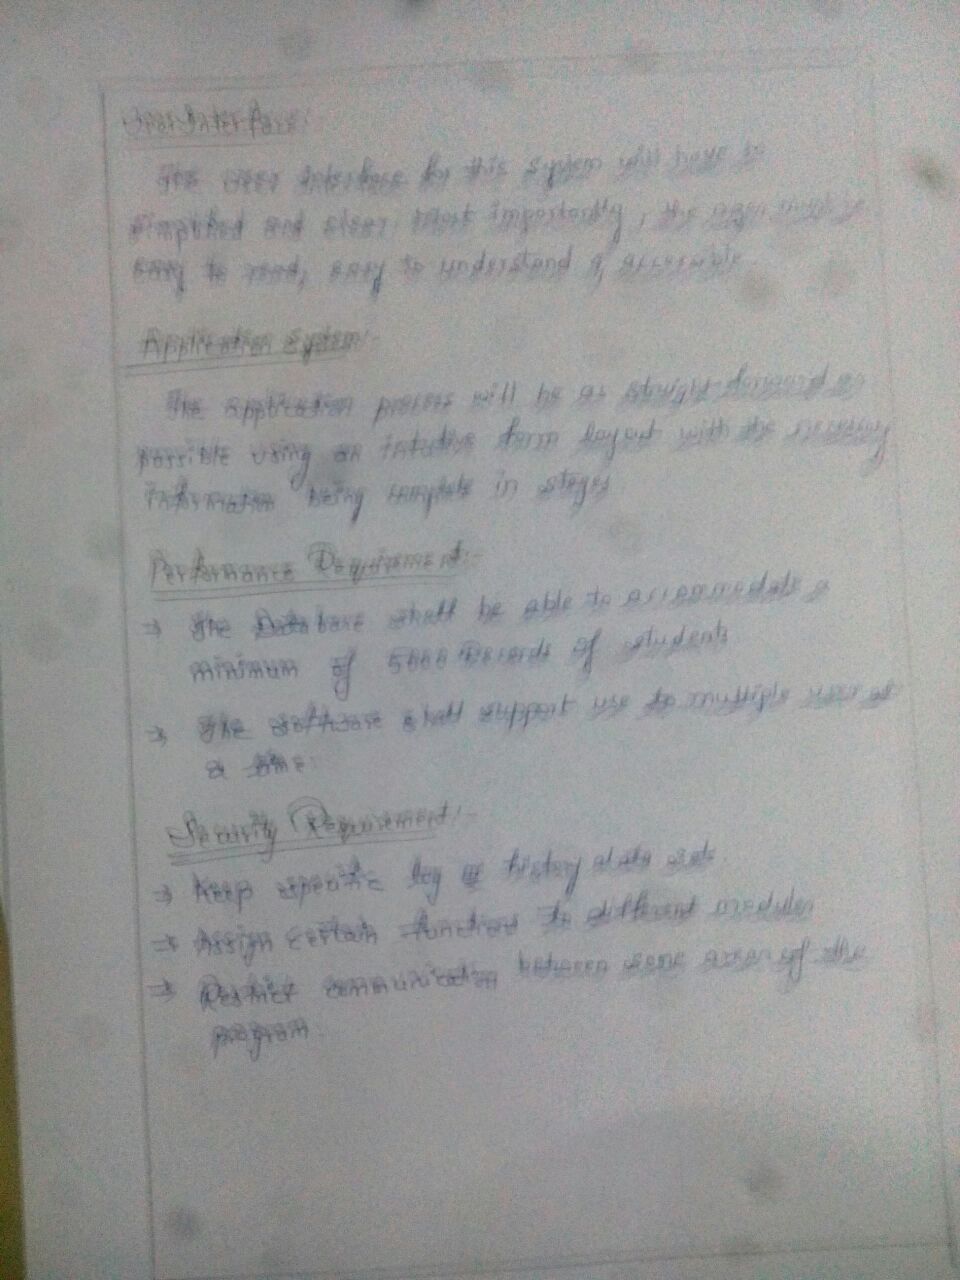 The user interface of the system will have
simplified and clear
easy to read, easy to understand & accessible.
Application System:-
The application process will be as straight forward as
possible using an intuitive form layout with the necessary
information being complete in stages
Performance Requirement:-
⇒ The Database shall be able to accommodate a
minimum of 5000 Records of students
⇒ The software shall support use of multiple users at
a time.
Security Requirement:-
⇒ Keep specific log or history data sets.
⇒ Assign certain functions to different modules
⇒ Restrict communication between some areas of the
program.